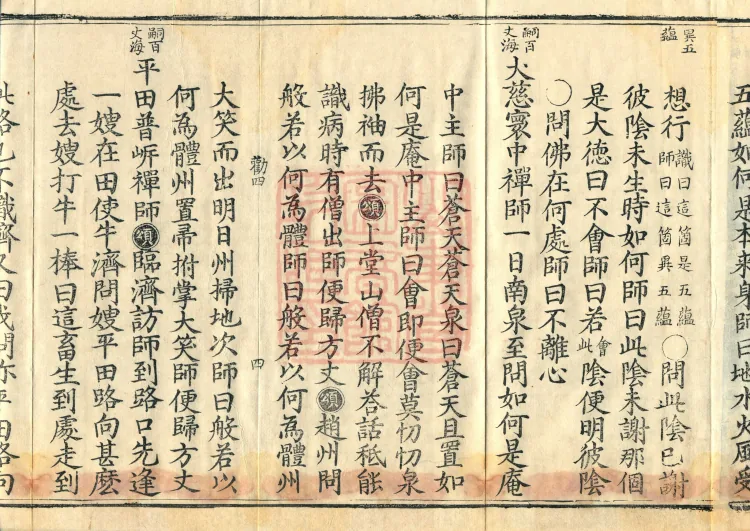 五蘊如何是本來身師曰地水火風受
想行識曰這箇是五蘊師曰這箇異五蘊○問此陰已謝
異五蘊
彼陰未生時如何師曰此陰未謝那個
是大德曰不會師曰若會此陰便明彼陰
○問佛在何處師曰不離心
嗣百丈海
大慈寰中禪師一日南泉至問如何是庵
中主師曰蒼天蒼天泉曰蒼天且置如
何是庵中主師曰會即便會莫忉忉泉
拂袖而去頌上堂山僧不解荅話秪能
識病時有僧出師便歸方丈頌趙州問
般若以何為體師曰般若以何為體州
勸四
四
大笑而出明日州掃地次師曰般若以
何為體州置帚拊掌大笑師便歸方丈
嗣百丈海
平田普岸禪師頌臨濟訪師到路口先逢
一嫂在田使牛濟問嫂平田路向甚麼
處去嫂打牛一棒曰這畜生到處走到
此路也不識濟又曰我問你平田路向